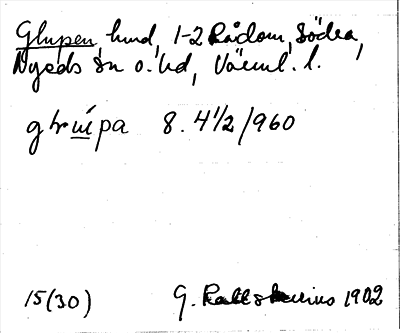 Glupen, hmd, 1-2 Rådom, Södra,
Nyeds sn o. hd, Värml. l.
glrupa 8. 4 1/2/960
15(30) G. Kallstenius 1902